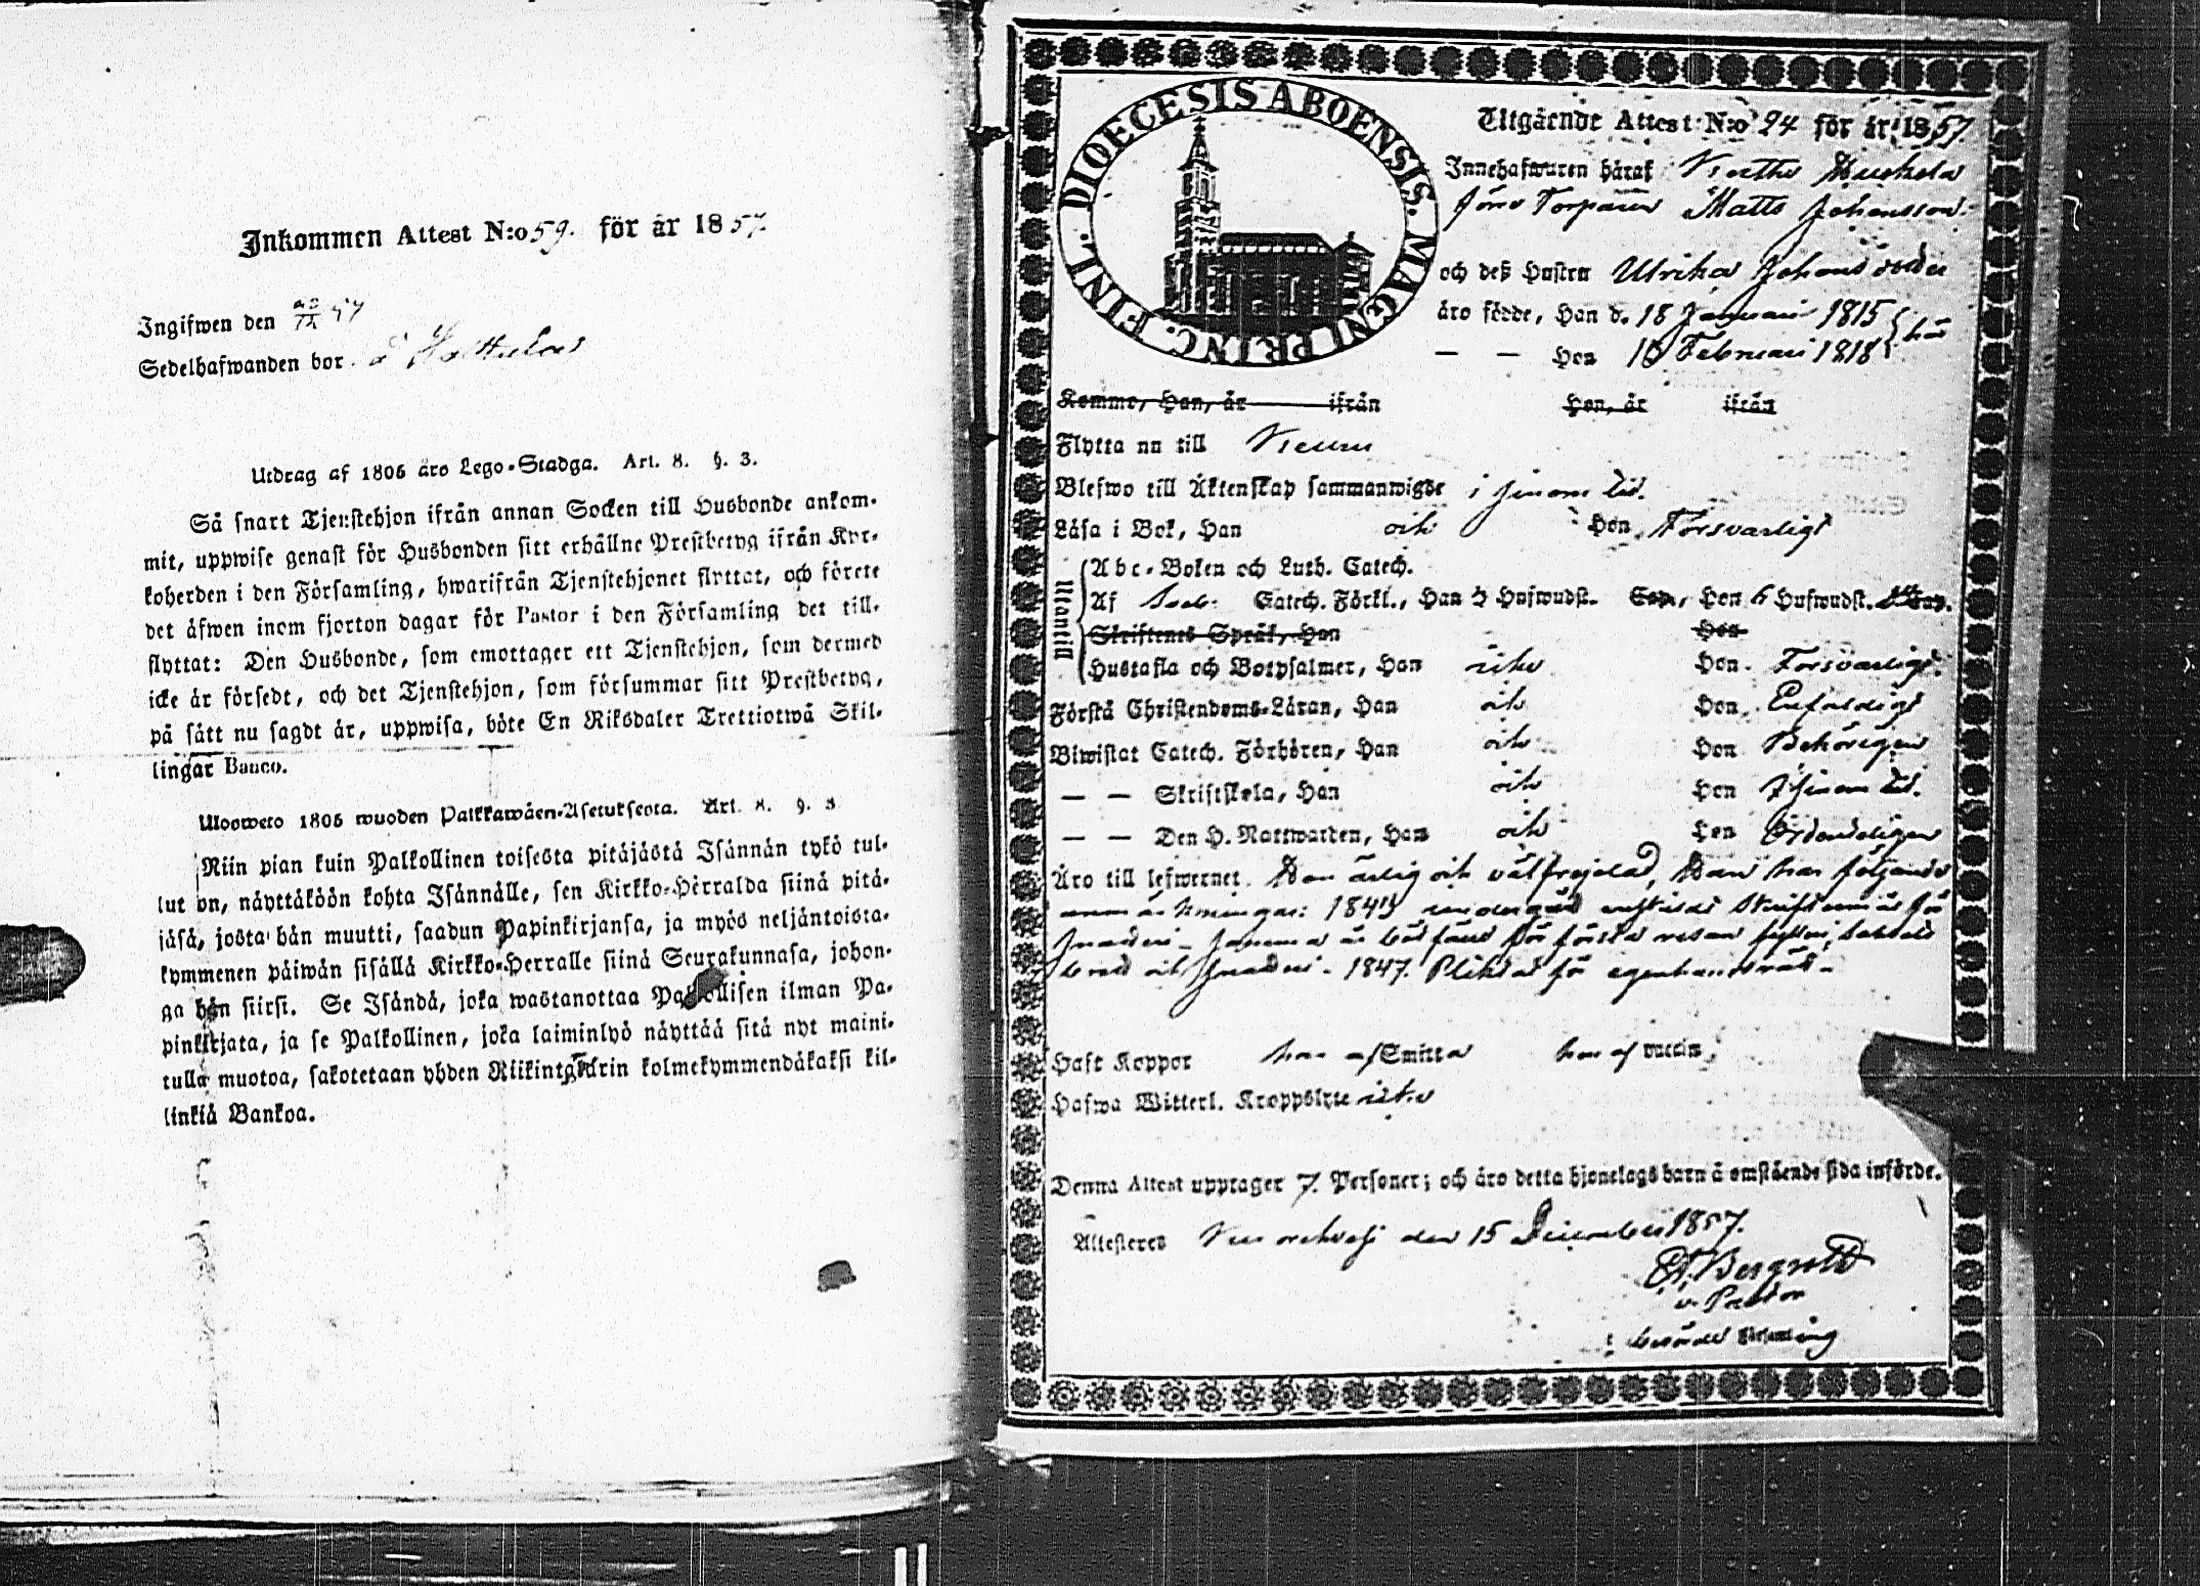 Inkommen Attest N:o 59. för år 1857.
Ingifwen den 20/12 57
Sedelhafwanden bor i
Utdrag af 1805 års Lego-Stadga. Art. 8. §. 3.
Så snart Tjenstehjon ifrån annan Socken till Husbonde ankom-
mit, uppwise genast för Husbonden sitt erhållne Prestbetyg ifrån Kyr-
koherden i den Församling, hwarifrån Tjenstehjonet flyttat, och förete
det äfwen inom fjorton dagar för Pastor i den Församling det till-
flyttat: Den Husbonde, som emottager ett Tjenstehjon, som dermed
icke är försedt, och det Tjenstehjon, som försummar sitt Prestbetyg,
på sätt nu sagdt är, uppwisa, böte En Riksdaler Trettiotwå Skil-
lingar Banco.
Ulosweto 1805 wuoden Palkkawäen-Asetuksesta. Art. 8. §. 3
Niin pian kuin Palkollinen toisesta pitäjästä Isännän tykö tul-
lut on, näyttäköön kohta Isännälle, sen Kirkko-Herralda siinä pitä-
jäsä, josta hän muutti, saadun Papinkirjansa, ja myös neljäntoista-
kymmenen päiwän sisällä Kirkko-Herralle siinä Seurakunnasa, johon-
ga hän siirsi. Se Isändä, joka wastanottaa Palkollisen ilman Pa-
pinkirjata, ja se Palkollinen, joka laiminlyö näyttää sitä nyt maini-
tulla muotoa, sakotetaan yhden Riikintalarin kolmekymmendäkaksi kil-
linkiä Bankoa.
DIOECESIS ABOENSIS. MAGNI PRINC. FINL.
Utgående Attest N:o 24 för år 1857.
Innehafwaren häraf
före Torparen Matts Johansson
och deß Hustru Ulrika Johansdotter
äro födde, Han d. 18 Januari 1815 här
— — Hon 10 Februari 1818
Komne, Han, år ifrån Hon, år ifrån
Flytta nu till Keuru
Blefwo till Äktenskap sammanwigde i sinom tid.
Läsa i Bok, Han och Hon Försvarligt
Utantill
Abc-Boken och Luth. Catech.
Af Catech. Förkl., Han 3 Hufwudst. Cap, Hon 6 Hufwudst. Cap.
Skriftenes Språk, Han Hon
Hustafla och Botpsalmer, Han och Hon Försvarligt
Förstå Christendoms-Läran, Han och Hon Enfaldigt
Biwistat Catech. Förhören, Han och Hon Behörigen
— — Skriftskola, Han och Hon i sinom tid.
— — Den H. Nattwarden, Han och Hon Ordenteligen
Äro till lefwernet Hon ärlig och välfrejdad, Han har följande
anmärkningar: 1843 undergått enskildt Skriftermål för
1847. Pliktat för egenhandsrätt
Haft Koppor han af Smitta hon af vaccin
Hafwa Witterl. Kroppslyte icke
Denna Attest upptager 7. Personer; och äro detta hjonelags barn å omstående sida införde.
Attesteres den 15 December 1857.
v. Pastor
Församling